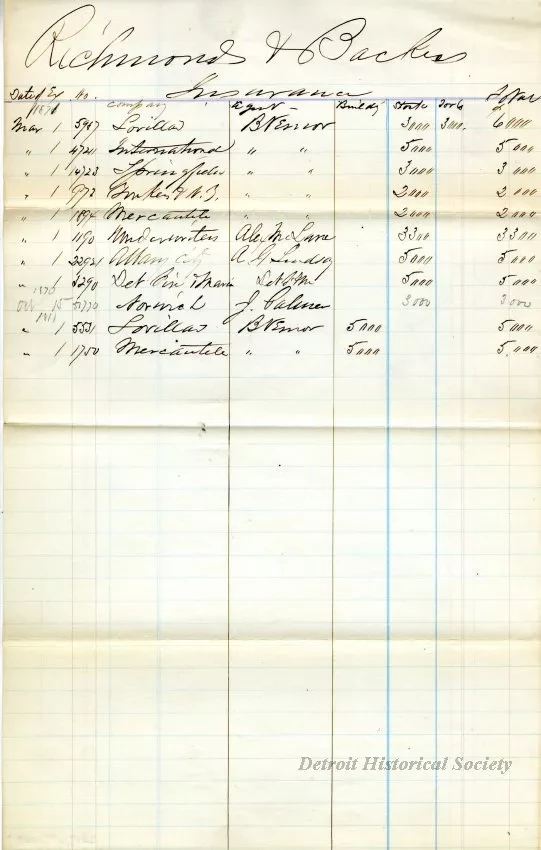 Richmonds & Backus
Insurance
Date of Ex. No. Company Agent Building Stock Tools Total
1871
Mar 1 5967 Lorillard B Vernor 3000 3000. 6000
" 1 4721 International " " 5000 5000
" 1 14723 Springfield " " 3000 3000
" 1 972 N.Y. " " 2000 2000
" 1 1894 Mercantile " " 2000 2000
" 1 1190 Underwriters Alex McLane 3300 3300
" 1 22921 Albany City A G Lindsay 5000 5000
" 1 5290 Det Fire & Marine Det F&M 5000 5000
1870
Oct 15 51770 Norwich J. Palmer 3000 3000
1871
" 1 5531 Lorillard B Vernor 5000 5000
" 1 1750 Mercantile " " 5000 5,000
Detroit Historical Society